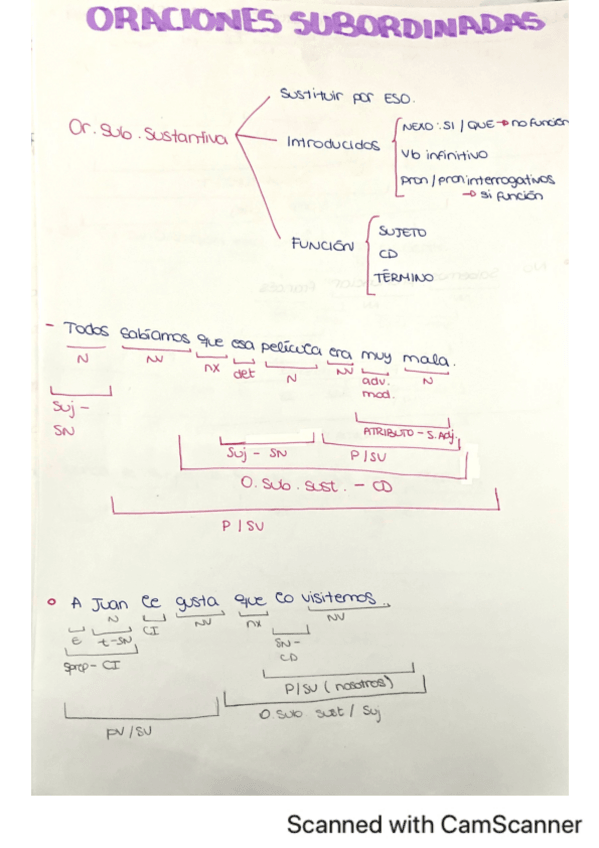 ORACIONES SUBORDINADAS
Sustituir por ESO.
Or. Sub. Sustantiva
Introducidos
NEXO: SI / QUE → no función
Vb infinitivo
pron / pron interrogativos
→ si función
FUNCIÓN
SUJETO
CD
TÉRMINO
- Todos sabíamos que esa película era muy mala.
N NV nx det N NV adv. mod. N
Suj - SN
ATRIBUTO - S.Adj.
Suj - SN P/SV
O. Sub. Sust. - CD
P/SV
A Juan le gusta que lo visitemos.
E t-SN N CI NV nx SN-CD NV
Sprep - CI
P/SV (nosotros)
O. Sub sust / Suj
PV/SV
Scanned with CamScanner